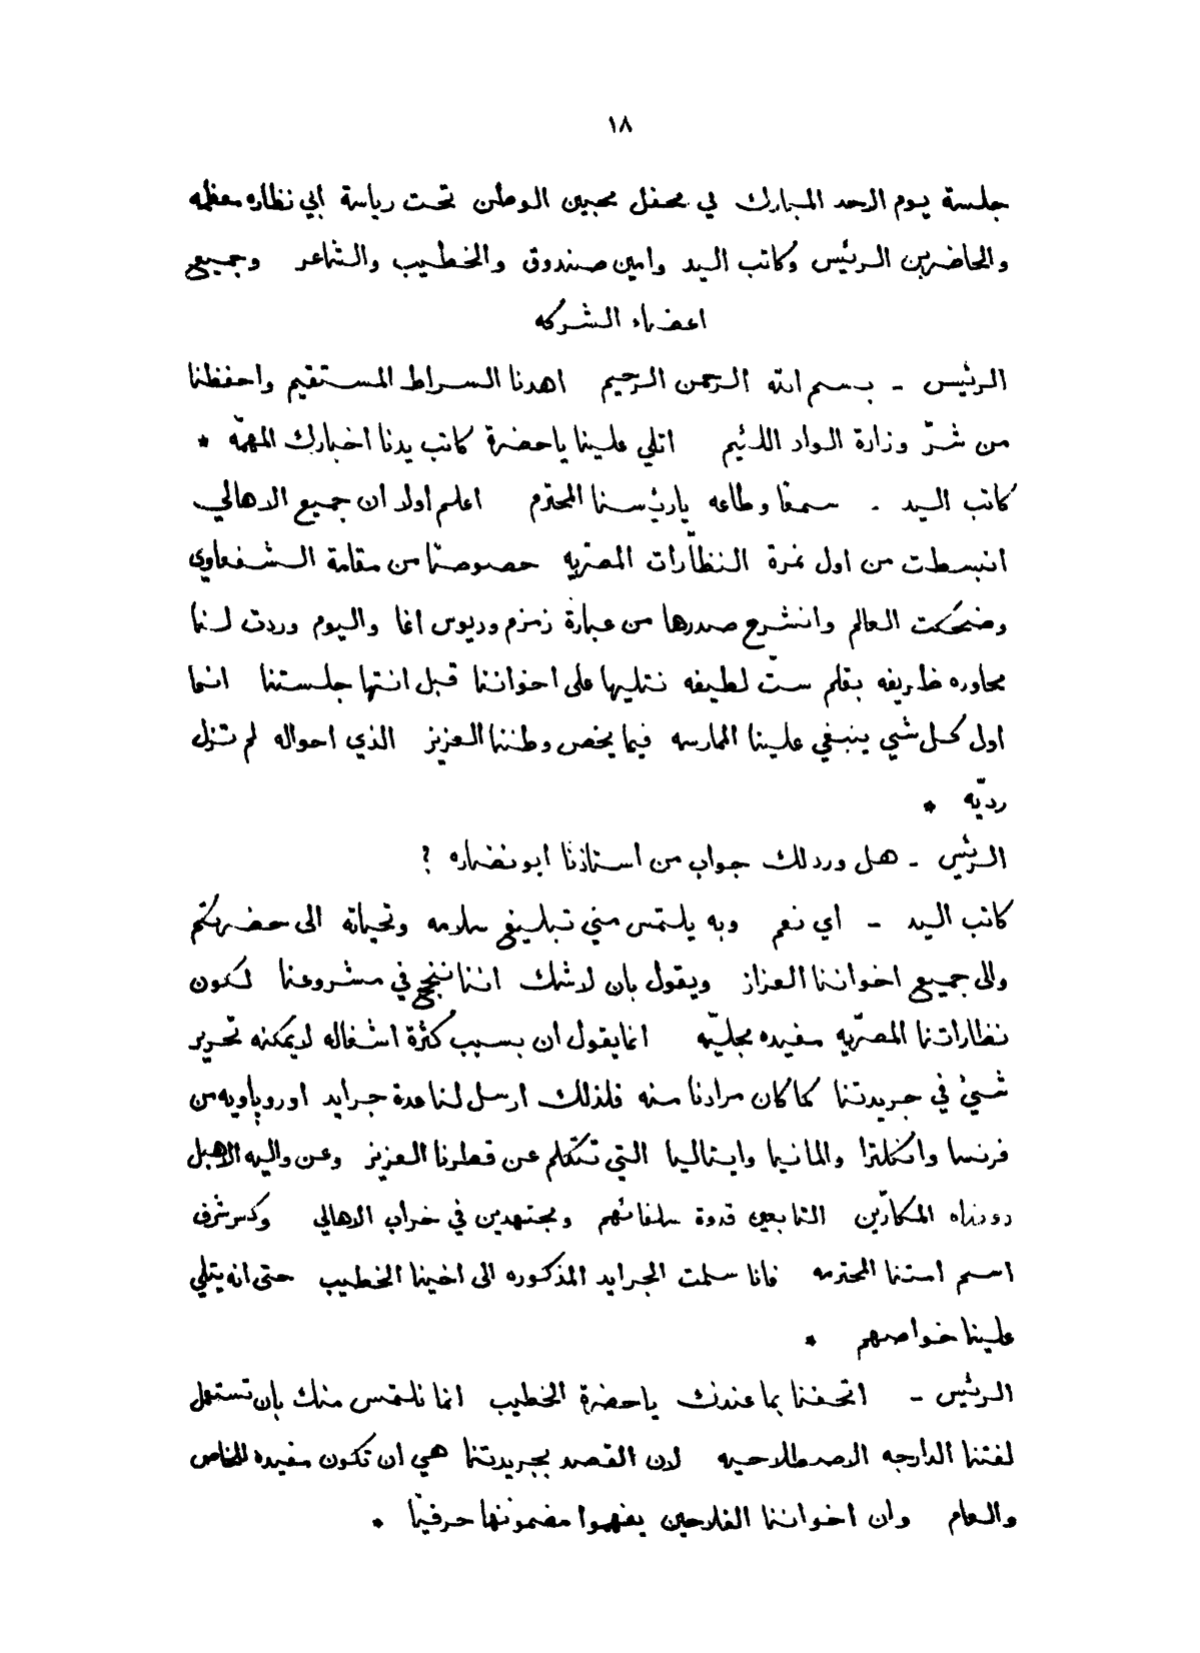 ١٨
جلسة يوم الاحد المبارك في محفل محبين الوطن تحت رياسة ابي نظاره معظمه
والحاضرين الرئيس وكاتب اليد وامين صندوق والخطيب والشاعر وجميع
اعضاء الشركه
الرئيس - بسم الله الرحمن الرحيم اهدنا السراط المستقيم واحفظنا
من شرّ وزارة الواد اللئيم اتلي علينا ياحضرة كاتب يدنا اخبارك المهمّه *
كاتب اليد - سمعًا وطاعه يارئيسنا المحترم اعلم اولا ان جميع الاهالي
انبسطت من اول نمرة النظّارات المصريه خصوصًا من مقامة الشفعاوي
وضحكت العالم وانشرح صدرها من عبارة زمزم وريوس اغا واليوم وردت لنا
محاوره ظريفه بقلم ستّ لطيفه نتليها على اخواننا قبل انتها جلستنا انما
اول كل شي ينبغي علينا الممارسه فيما يخص وطننا العزيز الذي احواله لم تزل
رديّه *
الرئيس - هل ورد لك جواب من استاذنا ابو نضاره ?
كاتب اليد - اي نعم وبه يلتمس مني تبليغ سلامه وتحياته الى حضرتكم
والى جميع اخواننا العزاز ويقول بان لاشك اننا ننجح في مشروعنا لكون
نظاراتنا المصريّه مفيده مجليّه انما يقول ان بسبب كثرة اشغاله لا يمكنه تحرير
شيئ في جريدتنا كما كان مرادنا منه فلذلك ارسل لنا عدة جرايد اوروپاويه من
فرنسا وانكلترا والمانيا وايتاليا التي تتكلم عن قطرنا العزيز وعن واليه الاهبل
ووزراه المكارّين التابعين قدوة سلفائهم ومجتهدين في خراب الاهالي وكسر شرف
اسم استنا المحترمه فانا سلمت الجرايد المذكوره الى اخينا الخطيب حتى انه يتلي
علينا خواصهم *
الرئيس - اتحفنا بما عندك ياحضرة الخطيب انما نلتمس منك بان تستعمل
لغتنا الدارجه الاصطلاحيه لان القصد بجريدتنا هي ان تكون مفيده للخاص
والعام وان اخواننا الفلاحين يفهموا مضمونها حرفيّا *